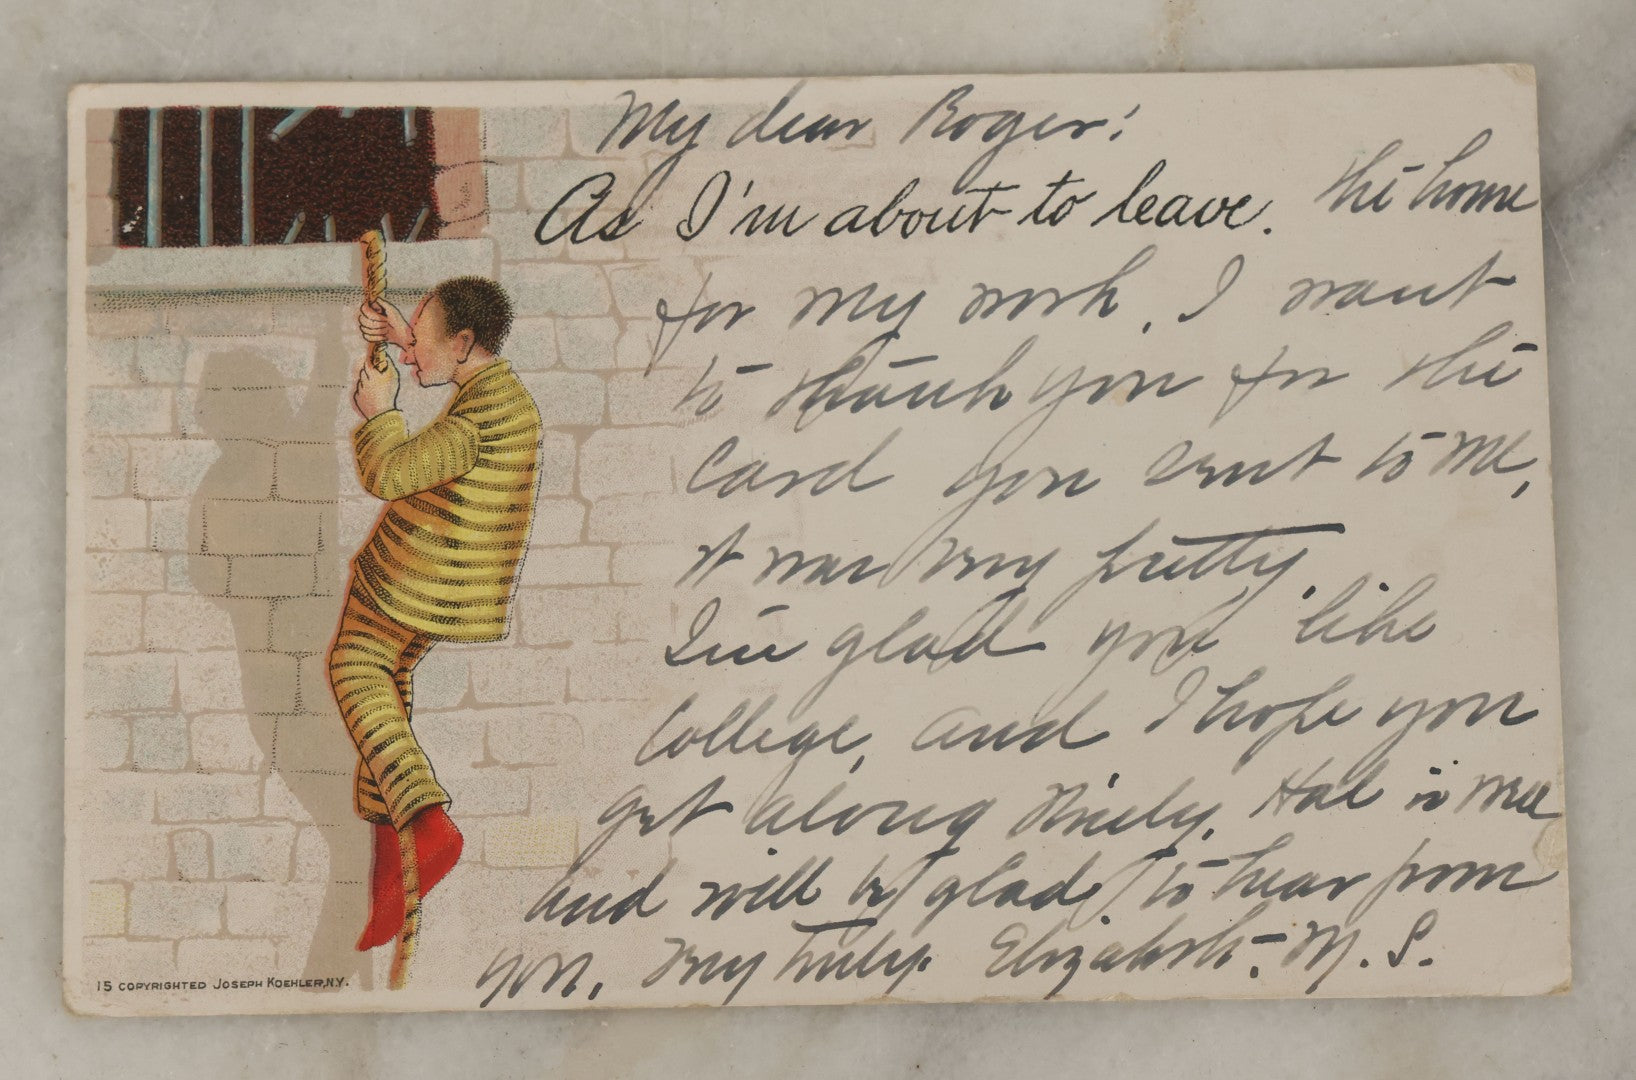 My dear Roger:
As I'm about to leave. the home
for my work, I want
to thank you for the
card you sent to me,
it was very pretty.
I'm glad you like
College, and I hope you
get along nicely. Hal is well
and will be glad to hear from
you. Very truly. Elizabeth. M. S.
15 COPYRIGHTED JOSEPH KOEHLER, N.Y.